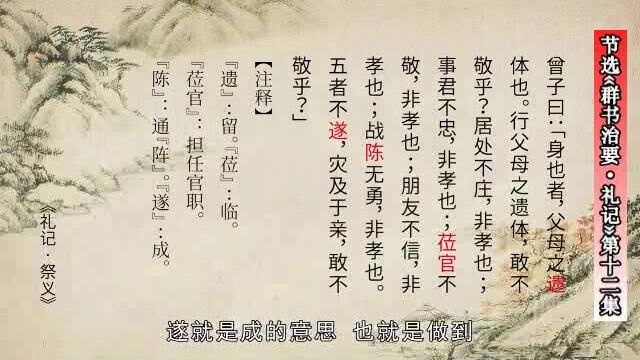 节选《群书治要·礼记》第十二集
曾子曰：「身也者，父母之遗
体也。行父母之遗体，敢不
敬乎？居处不庄，非孝也；
事君不忠，非孝也；莅官不
敬，非孝也；朋友不信，非
孝也；战陈无勇，非孝也。
五者不遂，灾及于亲，敢不
敬乎？」
【注释】
『遗』：留。『莅』：临。
『莅官』：担任官职。
『陈』：通『阵』。『遂』：成。
《礼记·祭义》
遂就是成的意思 也就是做到